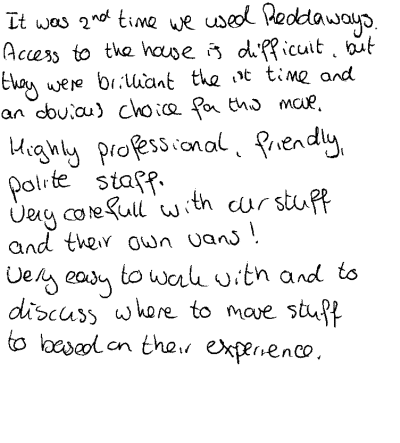 It was 2nd time we used Reddaways.
Access to the house is difficult, but
they were brilliant the 1st time and
an obvious choice for this move.
Highly professional, friendly,
polite staff.
Very carefull with our stuff
and their own vans!
Very easy to work with and to
discuss where to move stuff
to based on their experience.